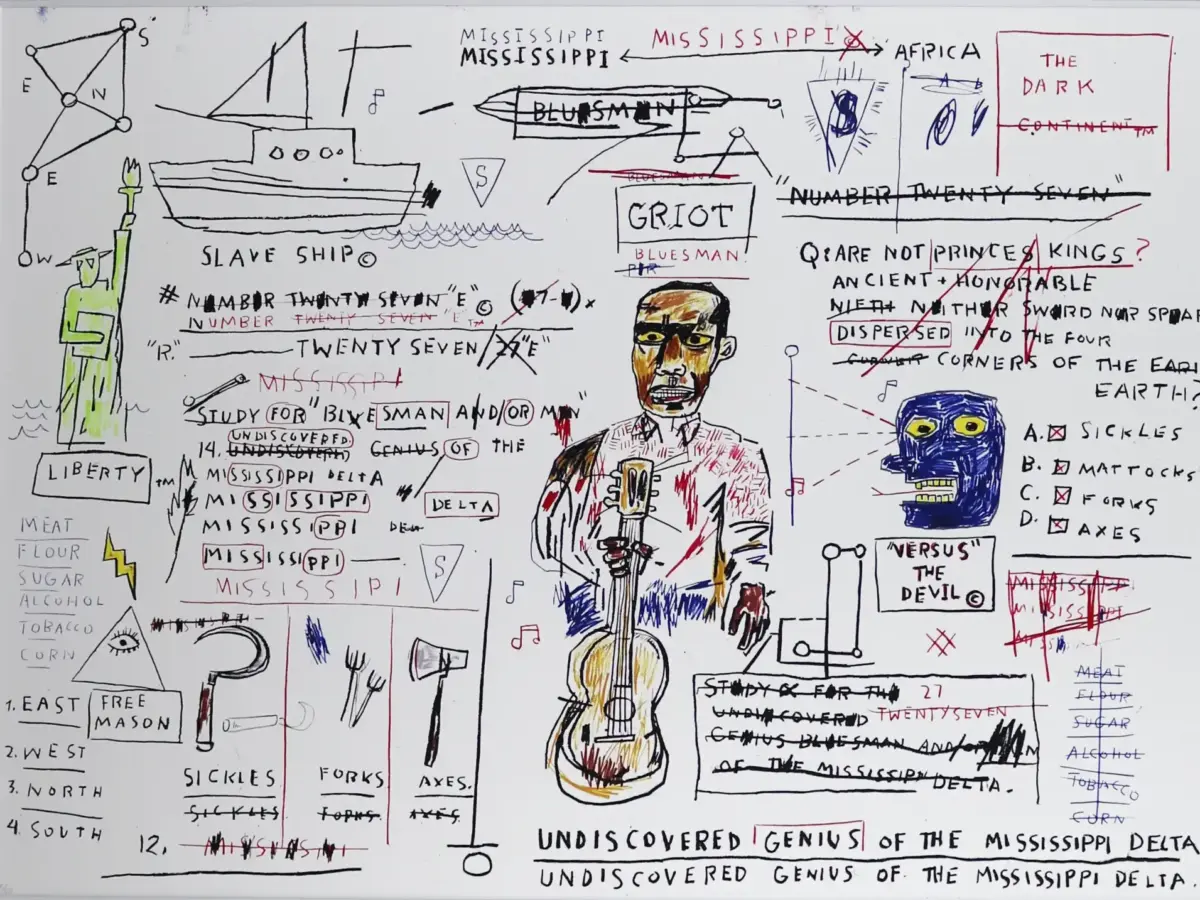 S
E
N
E
W
MISSISSIPPI
MISSISSIPPI
MISSISSIPPI
AFRICA
THE
DARK
CONTINENT™
BLUESMAN
A B
S
BLUESMAN
GRIOT
BLUESMAN
"NUMBER TWENTY SEVEN"
SLAVE SHIP©
# NUMBER TWENTY SEVEN "E" ©
NUMBER TWENTY SEVEN "E"™
"R." TWENTY SEVEN / 27 "E"
MISSISSIPI
STUDY FOR "BLUESMAN AND/OR MAN"
UNDISCOVERED
14. UNDISCOVERED GENIUS OF THE
MISSISSIPPI DELTA
MISSISSIPPI DELTA
MISSISSIPPI DEL
MISSISSIPPI
MISSISSIPI
S
LIBERTY™
Q: ARE NOT PRINCES KINGS?
ANCIENT + HONORABLE
NIETH NEITHER SWORD NOR SPEAR
DISPERSED INTO THE FOUR
CORNERS OF THE EAR
EARTH?
A. SICKLES
B. MATTOCKS
C. FORKS
D. AXES
"VERSUS"
THE
DEVIL ©
MEAT
FLOUR
SUGAR
ALCOHOL
TOBACCO
CORN
1. EAST
2. WEST
3. NORTH
4. SOUTH
FREE
MASON
SICKLES
SICKLES
FORKS
FORKS
AXES.
AXES
12.
STUDY FOR THE 27
UNDISCOVERED TWENTYSEVEN
GENIUS BLUESMAN AND/OR MAN
OF THE MISSISSIPPI DELTA.
MISSISSIPPI
MISSISSIPPI
MEAT
FLOUR
SUGAR
ALCOHOL
TOBACCO
CORN
UNDISCOVERED GENIUS OF THE MISSISSIPPI DELTA
UNDISCOVERED GENIUS OF THE MISSISSIPPI DELTA.